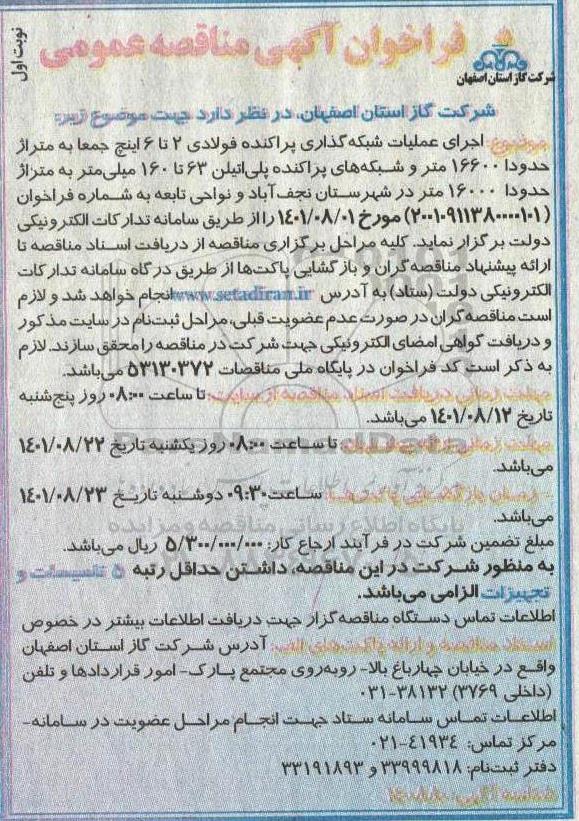 نوبت اول
فراخوان آگهی مناقصه عمومی
شرکت گاز استان اصفهان
شرکت گاز استان اصفهان، در نظر دارد جهت موضوع زیر:
موضوع: اجرای عملیات شبکه‌گذاری پراکنده فولادی ۲ تا ۶ اینچ جمعا به متراژ
حدودا ۱۶۶۰۰ متر و شبکه‌های پراکنده پلی‌اتیلن ۶۳ تا ۱۶۰ میلی‌متر به متراژ
حدودا ۱۶۰۰۰ متر در شهرستان نجف‌آباد و نواحی تابعه به شماره فراخوان
(۲۰۰۱۰۹۱۱۳۸۰۰۰۰۱۰۱) مورخ ۱۴۰۱/۰۸/۰۱ را از طریق سامانه تدارکات الکترونیکی
دولت برگزار نماید. کلیه مراحل برگزاری مناقصه از دریافت اسناد مناقصه تا
ارائه پیشنهاد مناقصه‌گران و بازگشایی پاکت‌ها از طریق درگاه سامانه تدارکات
الکترونیکی دولت (ستاد) به آدرس www.setadiran.ir انجام خواهد شد و لازم
است مناقصه‌گران در صورت عدم عضویت قبلی، مراحل ثبت‌نام در سایت مذکور
و دریافت گواهی امضای الکترونیکی جهت شرکت در مناقصه را محقق سازند. لازم
به ذکر است کد فراخوان در پایگاه ملی مناقصات ۵۳۱۳۰۳۷۲ می‌باشد.
مهلت زمانی دریافت اسناد مناقصه از سایت: تا ساعت ۰۸:۰۰ روز پنج‌شنبه
تاریخ ۱۴۰۱/۰۸/۱۲ می‌باشد.
مهلت زمانی تا ساعت ۰۸:۰۰ روز یکشنبه تاریخ ۱۴۰۱/۰۸/۲۲
می‌باشد.
- زمان بازگشایی پاکت‌ها: ساعت ۰۹:۳۰ دوشنبه تاریخ ۱۴۰۱/۰۸/۲۳
می‌باشد.
مبلغ تضمین شرکت در فرآیند ارجاع کار: ۵/۳۰۰/۰۰۰/۰۰۰ ریال می‌باشد.
به منظور شرکت در این مناقصه، داشتن حداقل رتبه ۵ تاسیسات و
تجهیزات الزامی می‌باشد.
اطلاعات تماس دستگاه مناقصه‌گزار جهت دریافت اطلاعات بیشتر در خصوص
اسناد مناقصه و ارائه پاکت‌های الف: آدرس شرکت گاز استان اصفهان
واقع در خیابان چهارباغ بالا- روبه‌روی مجتمع پارک- امور قراردادها و تلفن
۰۳۱-۳۸۱۳۲ (داخلی ۳۷۶۹)
اطلاعات تماس سامانه ستاد جهت انجام مراحل عضویت در سامانه-
مرکز تماس: ۰۲۱-۴۱۹۳۴
دفتر ثبت‌نام: ۳۳۹۹۹۸۱۸ و ۳۳۱۹۱۸۹۳
شناسه آگهی:
پایگاه اطلاع رسانی مناقصه و مزایده